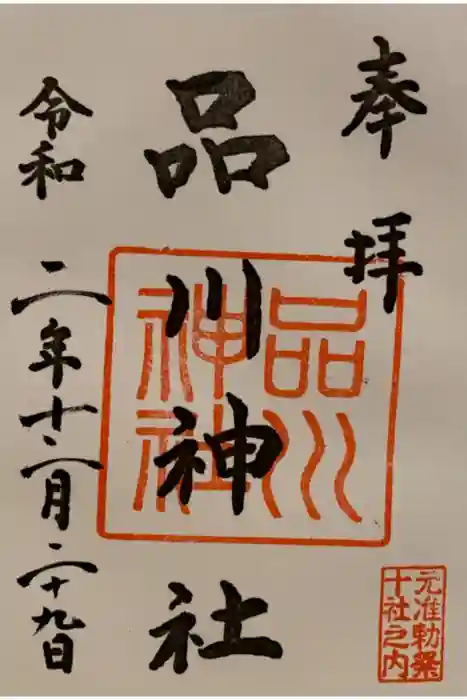 奉拝
品川神社
品川
神社
元准勅祭
十社之内
令和二年十二月二十九日